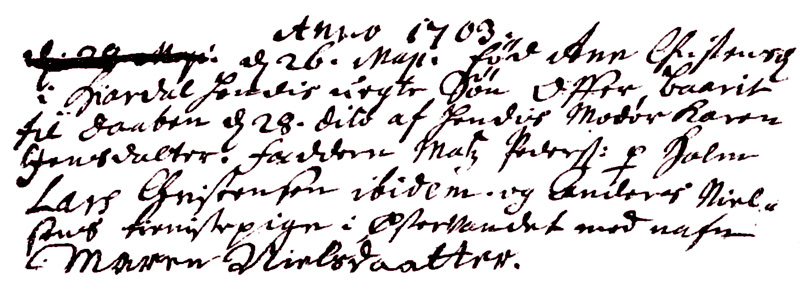 Anno 1703.
d. 28 Maji. d 26. Maji. fød Ane Christensd
i Hiørdal hendis uegte Søn Offer, baarit
til daaben d 28. dito af hendis Moder Karen
Jensdatter. Faddern Matz Peders: p Holm
Lars Christensen ibidem. og Anders Niel-
sens tienistepige i Østervandet med nafn
Maren Nielsdaatter.